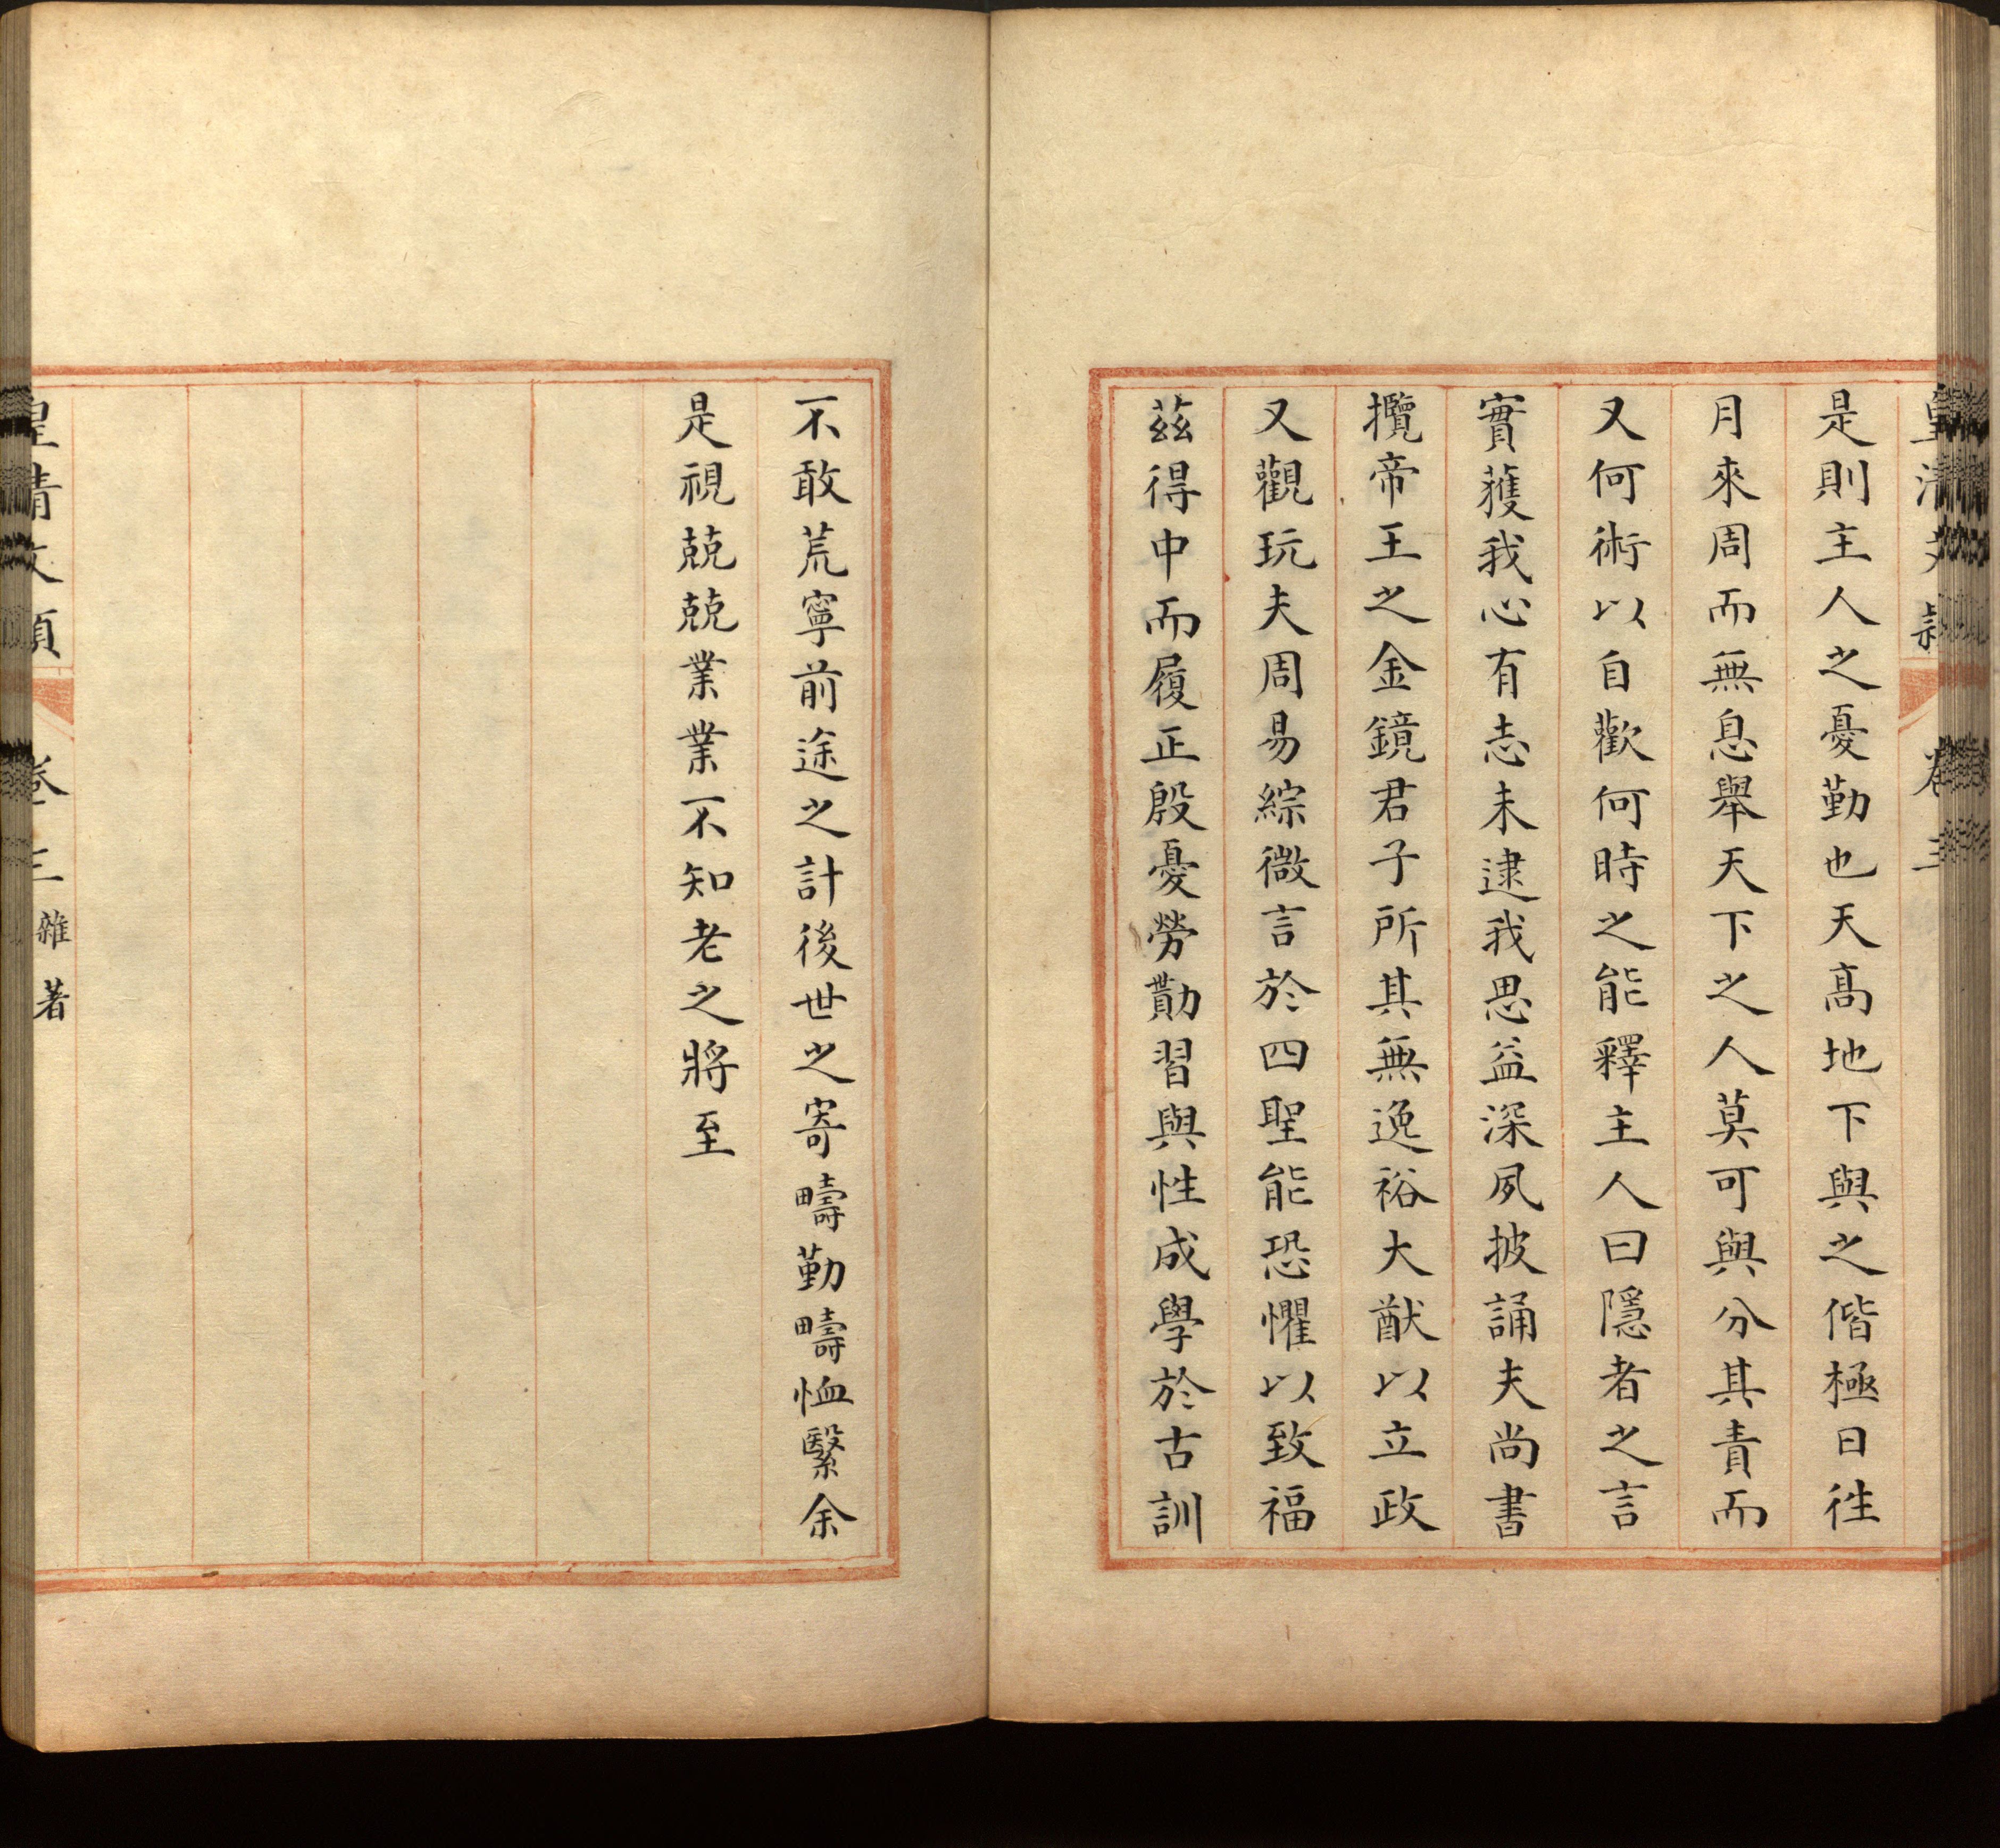 皇清文穎 卷三
是則主人之憂勤也天髙地下與之偕極日徃
月來周而無息舉天下之人莫可與分其責而
又何術以自歡何時之能釋主人曰隱者之言
實蒦我心有志未逮我思益深夙披誦夫尚書
攬帝王之金鏡君子所其無逸裕大猷以立政
又觀玩夫周易綜微言於四聖能恐懼以致福
茲得中而履正殷憂勞勩習與性成學於古訓
不敢荒寧前途之計後世之寄疇勤疇恤繄余
是視兢兢業業不知老之將至
皇清文穎 卷三 雜著